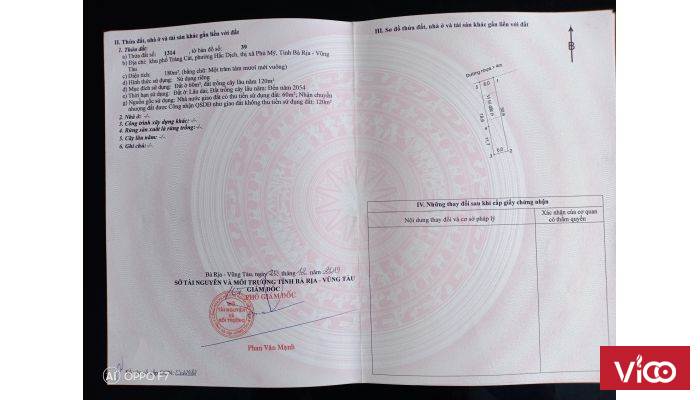 II. Thửa đất, nhà ở và tài sản khác gắn liền với đất
1. Thửa đất:
a) Thửa đất số: 1314, tờ bản đồ số: 39
b) Địa chỉ: khu phố Trảng Cát, phường Hắc Dịch, thị xã Phú Mỹ, Tỉnh Bà Rịa - Vũng
Tàu
c) Diện tích: 180m², (bằng chữ: Một trăm tám mươi mét vuông)
d) Hình thức sử dụng: Sử dụng riêng
đ) Mục đích sử dụng: Đất ở 60m², đất trồng cây lâu năm 120m²
e) Thời hạn sử dụng: Đất ở: Lâu dài; Đất trồng cây lâu năm: Đến năm 2054
g) Nguồn gốc sử dụng: Nhà nước giao đất có thu tiền sử dụng đất: 60m²; Nhận chuyển
nhượng đất được Công nhận QSDĐ như giao đất không thu tiền sử dụng đất: 120m²
2. Nhà ở: -/-
3. Công trình xây dựng khác: -/-
4. Rừng sản xuất là rừng trồng: -/-
5. Cây lâu năm: -/-
6. Ghi chú: -/-
Bà Rịa - Vũng Tàu, ngày tháng 12 năm 2019
SỞ TÀI NGUYÊN VÀ MÔI TRƯỜNG TỈNH BÀ RỊA - VŨNG TÀU
GIÁM ĐỐC
PHÓ GIÁM ĐỐC
SỞ
TÀI NGUYÊN
VÀ
MÔI TRƯỜNG
Phan Văn Mạnh
III. Sơ đồ thửa đất, nhà ở và tài sản khác gắn liền với đất
B
Đường nhựa
6.0
6.0
IV. Những thay đổi sau khi cấp giấy chứng nhận
Nội dung thay đổi và cơ sở pháp lý
Xác nhận của cơ quan
có thẩm quyền
AI OPPO F7
VICO